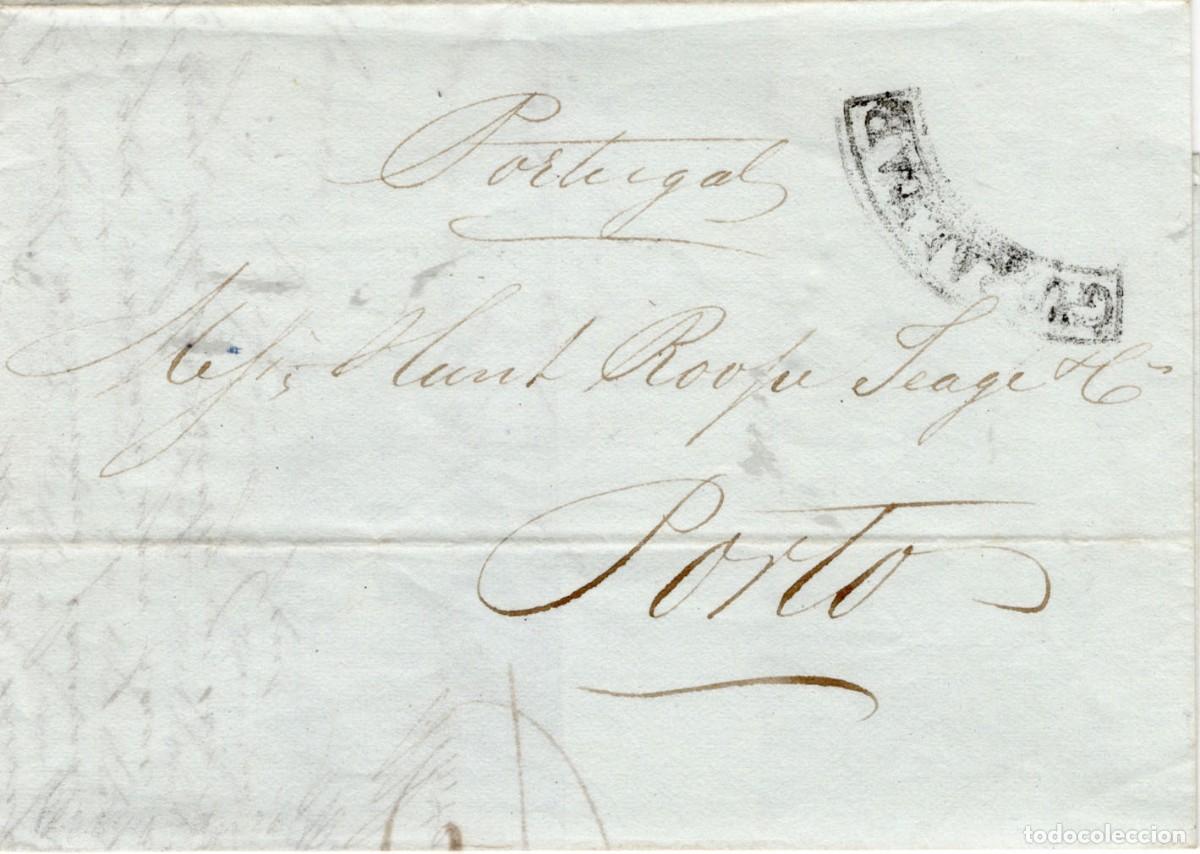 Portugal
GIBRALTAR
Messrs Hunt Roope Teage & Co
Porto
todocoleccion